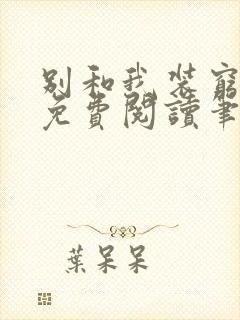 别和我装窮
免費閱讀筆
葉呆呆